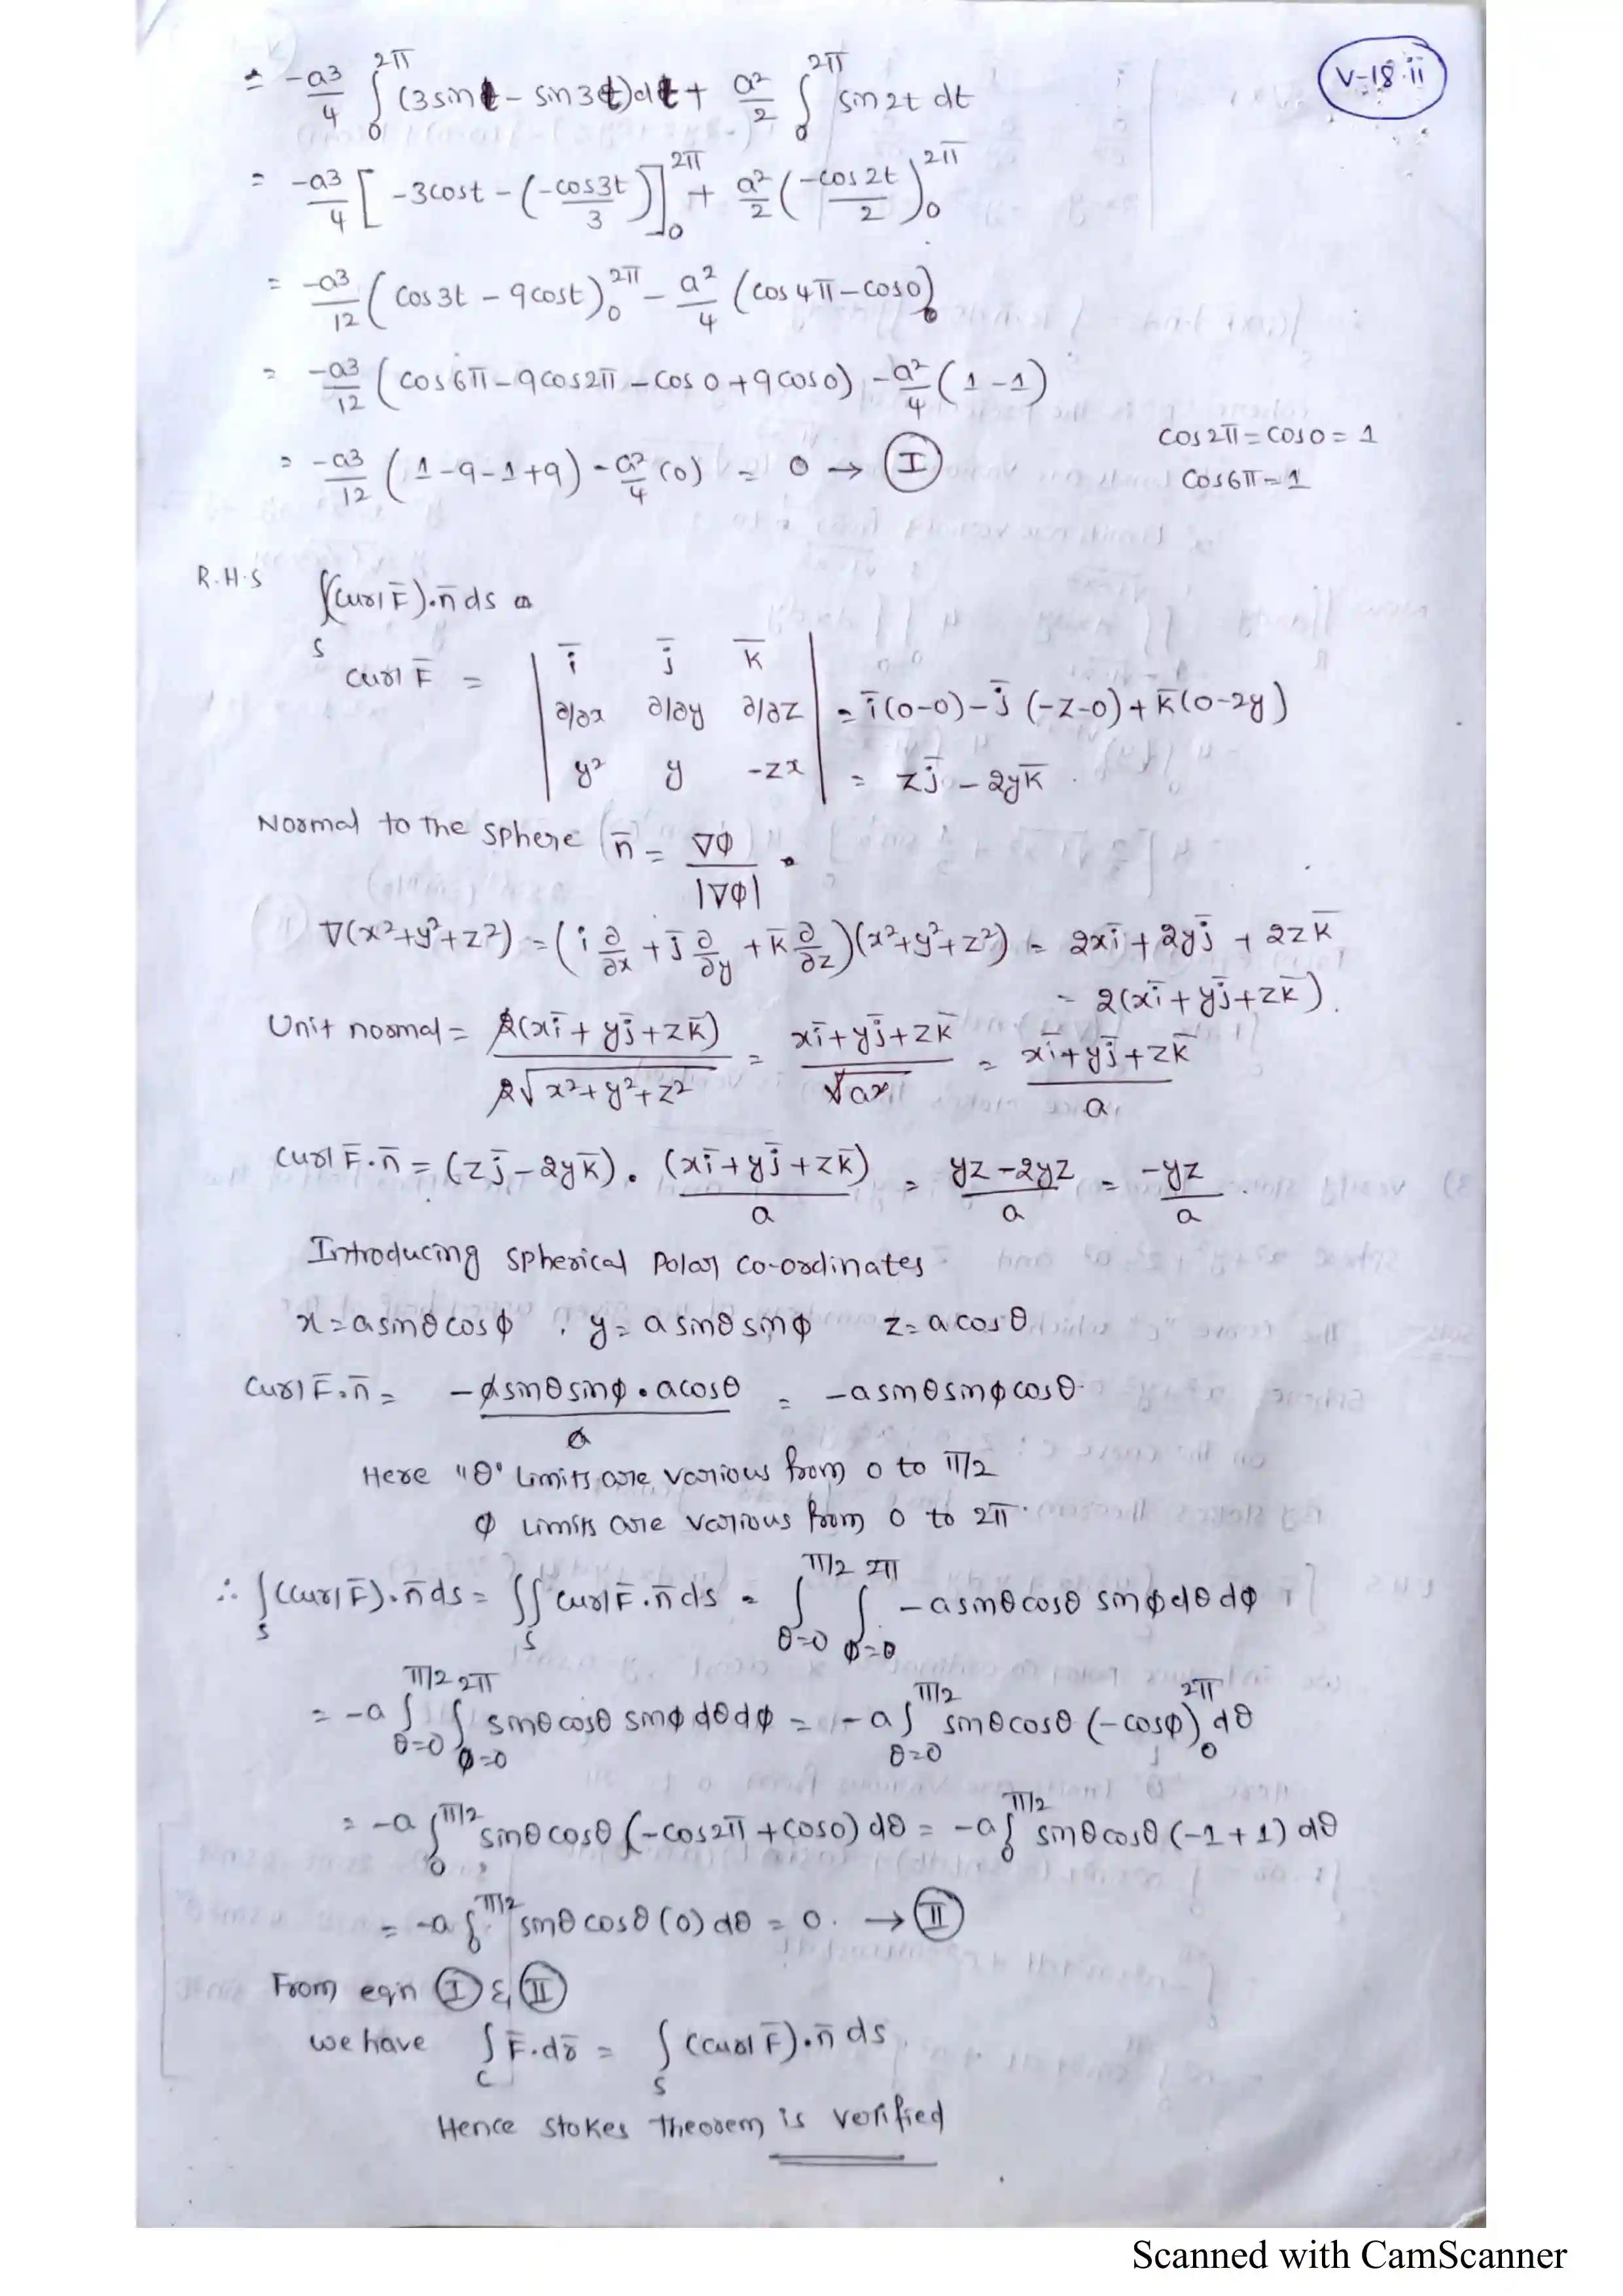 V-18.ii
= -a³/4 ∫₀^2π (3sint - sin3t)dt + a²/2 ∫₀^2π sin2t dt
= -a³/4 [ -3cost - (-cos3t/3) ]₀^2π + a²/2 (-cos2t/2)₀^2π
= -a³/12 ( cos3t - 9cost)₀^2π - a²/4 (cos4π - cos0)
= -a³/12 ( cos6π - 9cos2π - cos0 + 9cos0) - a²/4 (1 - 1)
cos2π = cos0 = 1
= -a³/12 ( 1 - 9 - 1 + 9) - a²/4 (0) = 0 → Ⓘ
cos6π = 1
R.H.S ∫_S (curl F̄).n̄ ds =
curl F̄ = | ī j̄ k̄ |
| ∂/∂x ∂/∂y ∂/∂z | = ī(0-0) - j̄(-z-0) + k̄(0-2y)
| y² y -zx | = zj̄ - 2yk̄.
Normal to the sphere n̄ = ∇φ / |∇φ| .
∇(x²+y²+z²) = (i ∂/∂x + j̄ ∂/∂y + k̄ ∂/∂z)(x²+y²+z²) = 2xī + 2yj̄ + 2zk̄
= 2(xī + yj̄ + zk̄).
Unit normal = 2(xī + yj̄ + zk̄) / 2√x²+y²+z² = xī + yj̄ + zk̄ / √a² = xī + yj̄ + zk̄ / a
curl F̄.n̄ = (zj̄ - 2yk̄). (xī + yj̄ + zk̄)/a = yz - 2yz / a = -yz/a.
Introducing spherical Polar co-ordinates
x = a sinθ cosφ , y = a sinθ sinφ z = a cosθ
curl F̄.n̄ = -a sinθ sinφ . a cosθ / a = -a sinθ sinφ cosθ.
Here "θ" limits are various from 0 to π/2
φ limits are various from 0 to 2π.
∴ ∫_S (curl F̄).n̄ ds = ∬_S curl F̄.n̄ ds = ∫_θ=0^π/2 ∫_φ=0^2π -a sinθ cosθ sinφ dθ dφ
= -a ∫_θ=0^π/2 ∫_φ=0^2π sinθ cosθ sinφ dθ dφ = -a ∫_θ=0^π/2 sinθ cosθ (-cosφ)₀^2π dθ
= -a ∫₀^π/2 sinθ cosθ (-cos2π + cos0) dθ = -a ∫₀^π/2 sinθ cosθ (-1 + 1) dθ
= -a ∫₀^π/2 sinθ cosθ (0) dθ = 0. → Ⅱ
From eqn Ⓘ & Ⅱ
we have ∫_C F̄.dr̄ = ∫_S (curl F̄).n̄ ds
Hence stokes theorem is verified
Scanned with CamScanner